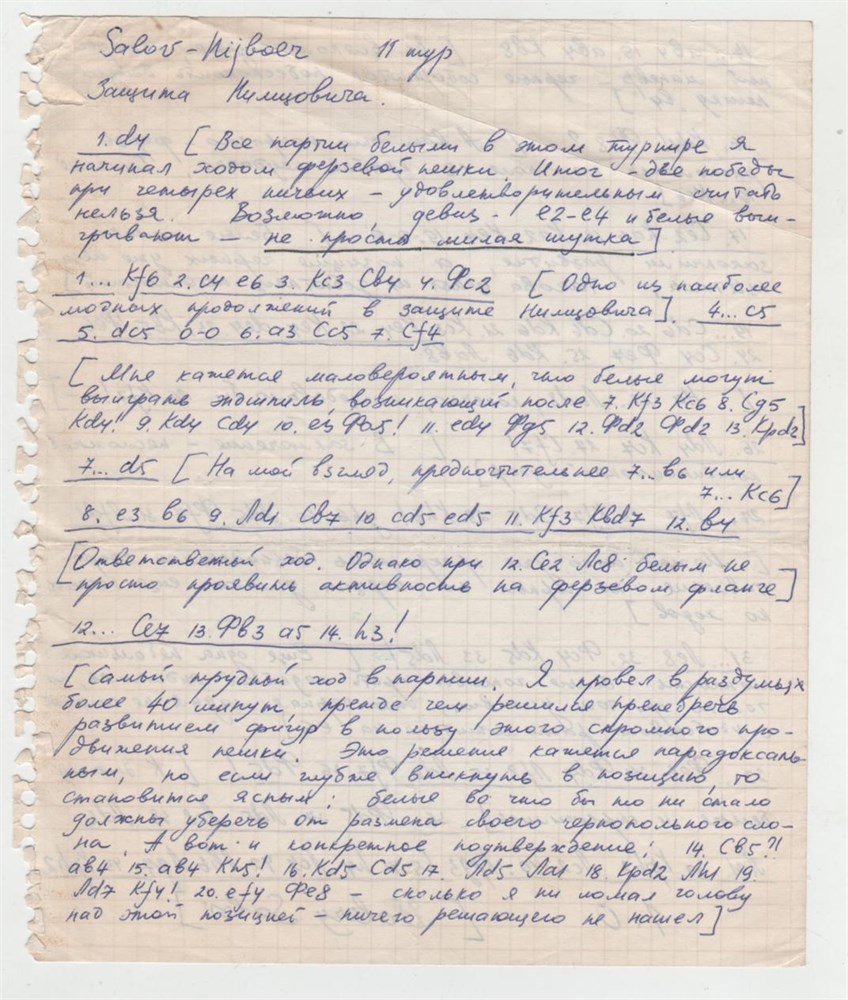 Salov – Nijboer 11 тур
Защита Нимцовича.
1. d4 [Все партии белыми в этом турнире я
начинал ходом ферзевой пешки. Итог – две победы
при четырех ничьих – удовлетворительным считать
нельзя. Возможно, девиз - e2-e4 и белые выи-
грывают – не просто милая шутка]
1... Kf6 2. c4 e6 3. Kc3 Cb4 4. Фc2 [Одно из наиболее
модных продолжений в защите Нимцовича]. 4... c5
5. dc5 0-0 6. a3 Cc5 7. Cf4
[Мне кажется маловероятным, что белые могут
выиграть эндшпиль, возникающий после 7. Kf3 Kc6 8. Cg5
Kd4! 9. Kd4 Cd4 10. e3 Фa5! 11. ed4 Фg5 12. Фd2 Фd2 13. Kpd2]
7... d5 [На мой взгляд, предпочтительнее 7... b6 или
7... Kc6]
8. e3 b6 9. Лd1 Cb7 10. cd5 ed5 11. Kf3 Kbd7 12. b4
[Ответственный ход. Однако при 12. Ce2 Лc8 белым не
просто проявить активность на ферзевом фланге]
12... Ce7 13. Фb3 a5 14. h3!
[Самый трудный ход в партии. Я провел в раздумьях
более 40 минут, прежде чем решился пренебречь
развитием фигур в пользу этого скромного про-
движения пешки. Это решение кажется парадоксаль-
ным, но если глубже вникнуть в позицию, то
становится ясным: белые во что бы то ни стало
должны уберечь от размена своего чернопольного сло-
на. А вот и конкретное подтверждение: 14. Cb5?!
ab4 15. ab4 Kh5! 16. Kd5 Cd5 17. Лd5 Лa1 18. Kpd2 Лh1 19.
Лd7 Kf4! 20. ef4 Фe8 – сколько я ни ломал голову
над этой позицией – ничего решающего не нашел]